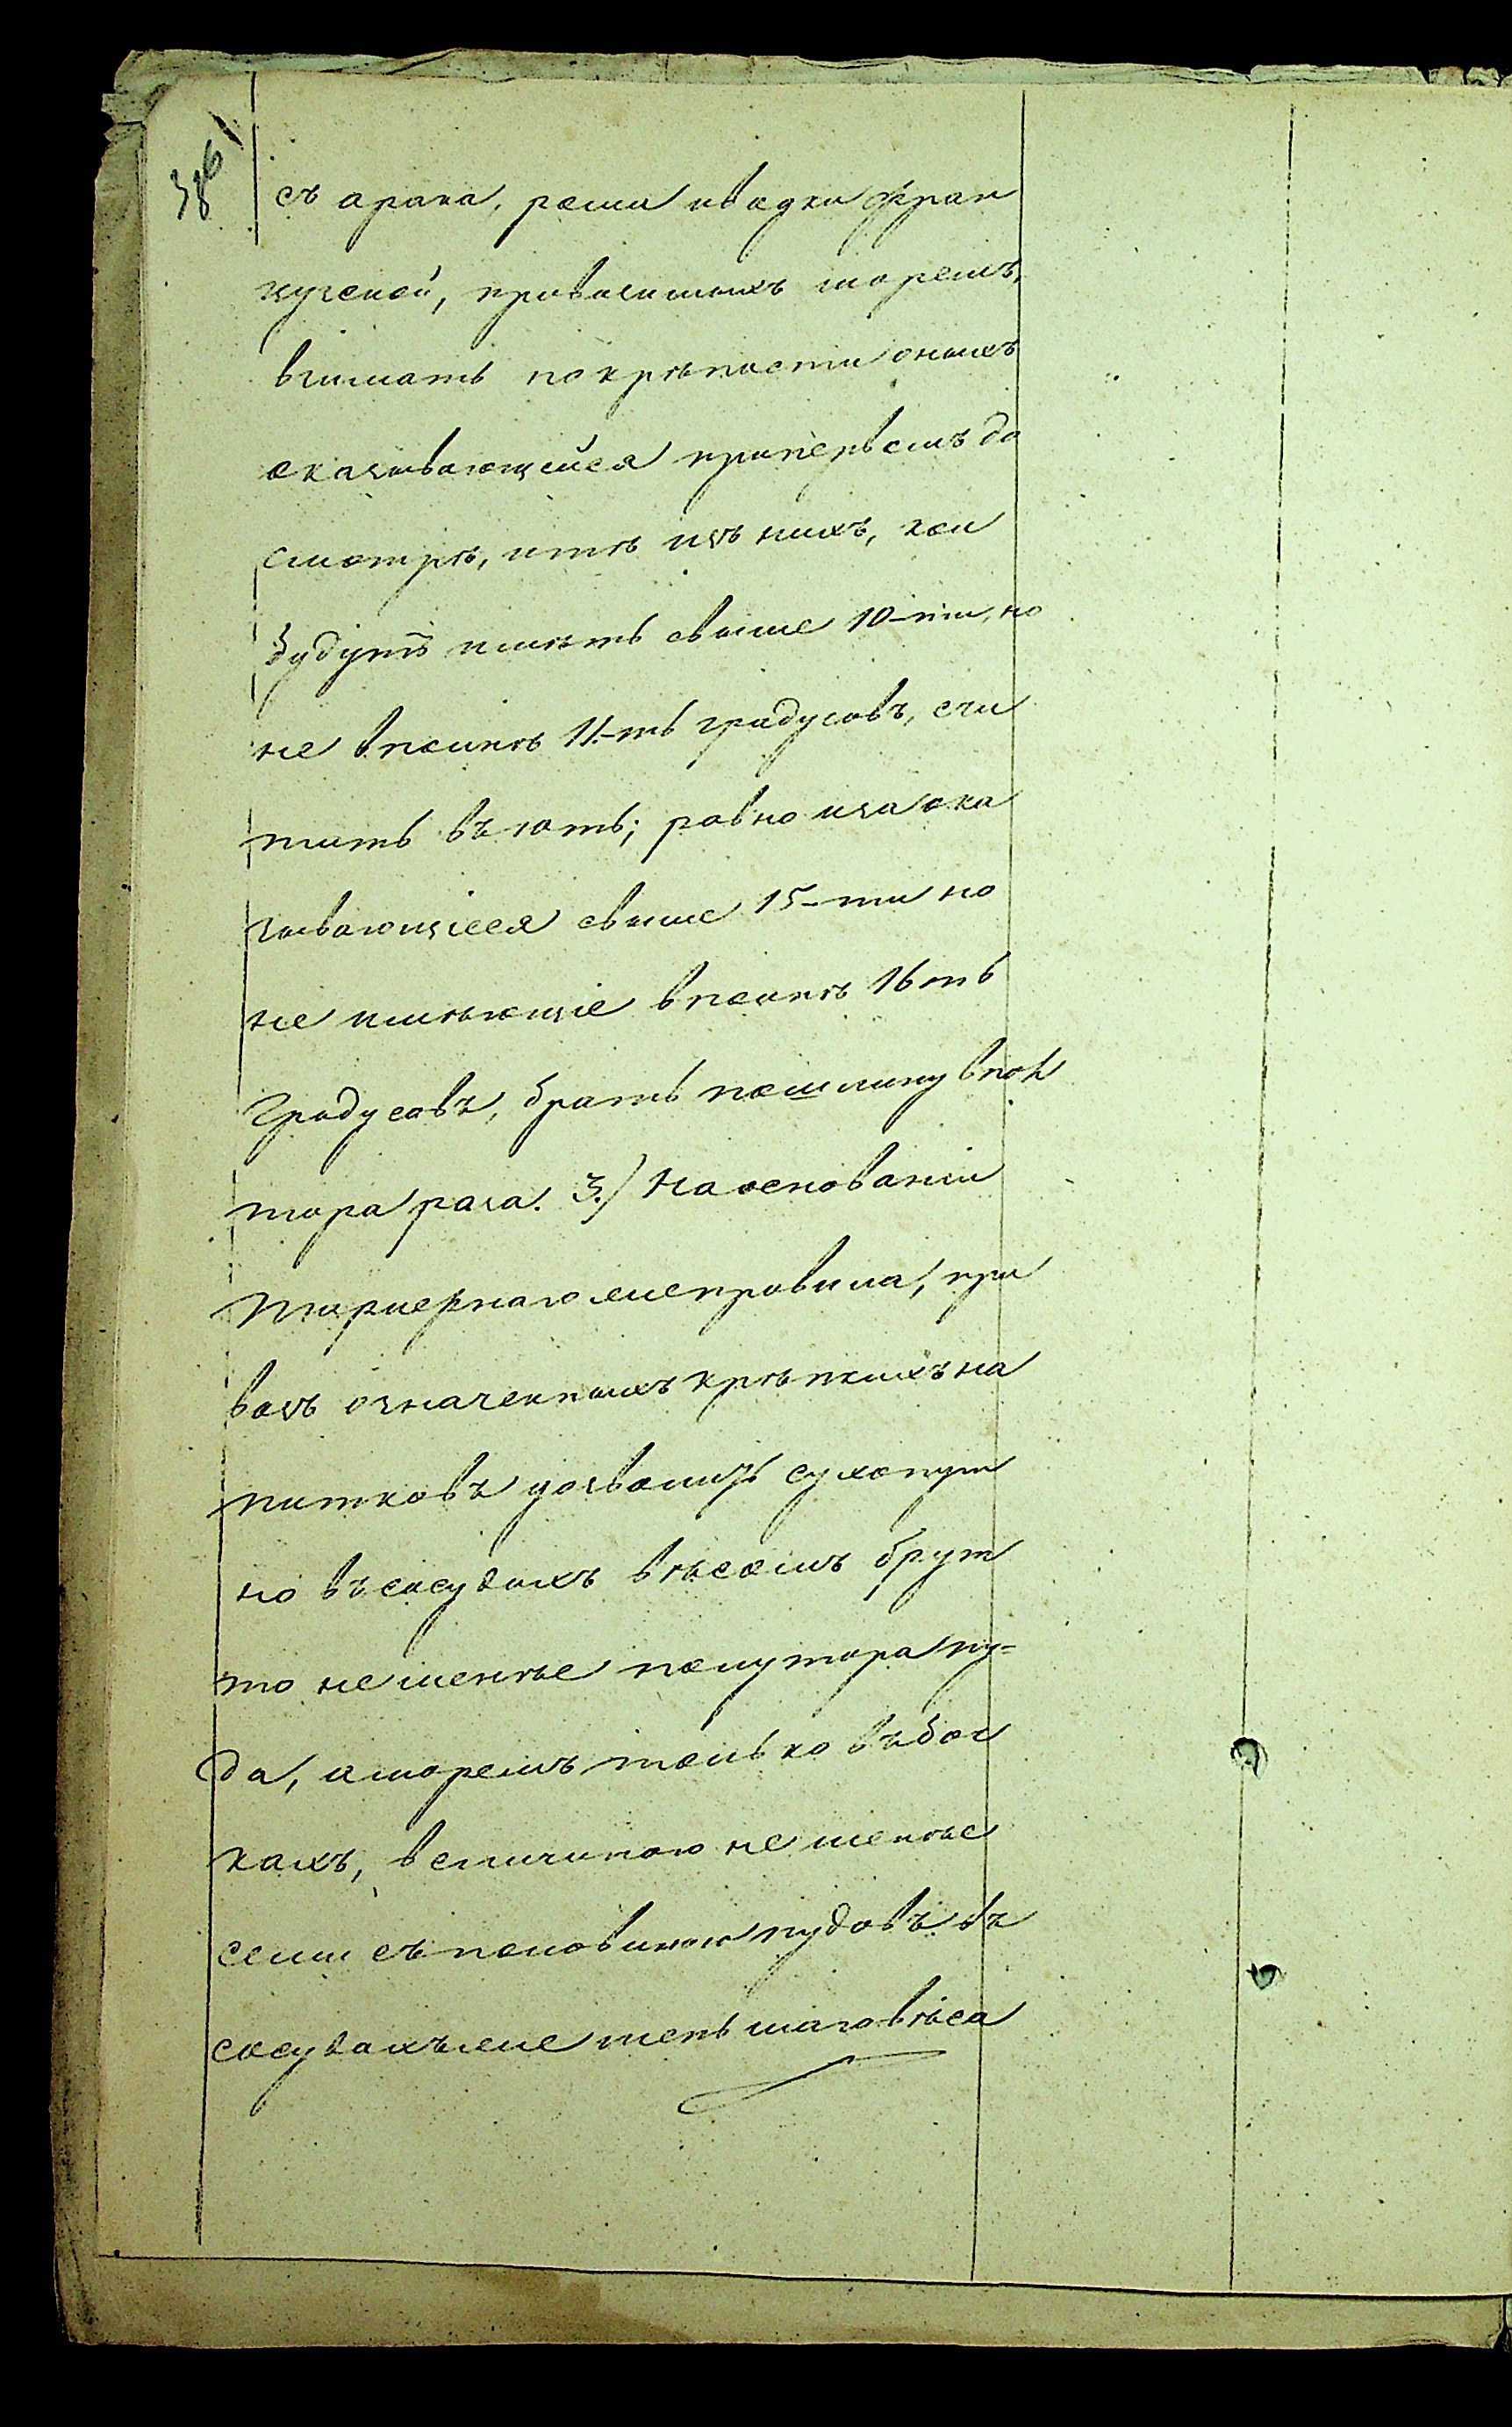 386
съ арака, рома и водки фран
цузской, привозимыхъ моремъ,
взимать по крѣпости оныхъ
оказывающейся при первомъ до
смотрѣ, и тѣ изъ нихъ, кои
будутъ имѣть свыше 10-ти, но
не вполнѣ 11-ть градусовъ, счи
тать въ 10ть; равно и за ока
зывающіеся свыше 15-ти но
не имѣющіе вполнѣ 16ть
градусовъ, брать пошлину впол
тора раза. 3.) На основаніи
тарифнаго же правила, при
возъ означенныхъ крѣпкихъ на
питковъ дозволить сухопут
но въ сосудахъ вѣсомъ брут
то не менѣе полутора пу=
да, а моремъ только въ боч
кахъ, величиною не менѣе
семи съ половиною пудовъ въ
сосудахъ же меньшаго вѣса